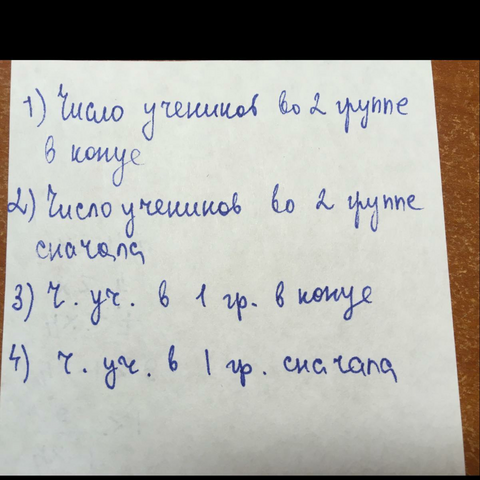 1) Число учеников во 2 группе
в конце
2) Число учеников во 2 группе
сначала
3) Ч. уч. в 1 гр. в конце
4) Ч. уч. в 1 гр. сначала